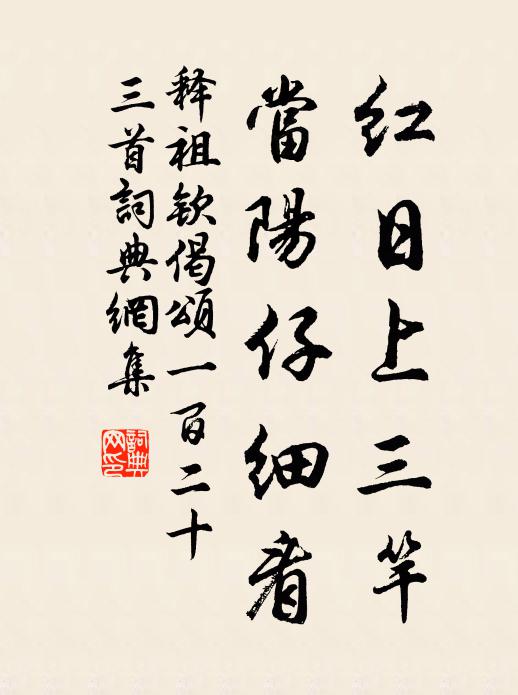 紅日上三竿
當陽仔細看
释祖欽偈頌一百二十
三首詞典網集
詞典網印